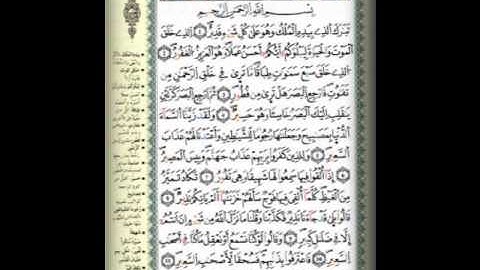 بِسْمِ اللَّهِ الرَّحْمَٰنِ الرَّحِيمِ
تَبَٰرَكَ الَّذِي بِيَدِهِ الْمُلْكُ وَهُوَ عَلَىٰ كُلِّ شَيْءٍ قَدِيرٌ ١ الَّذِي خَلَقَ
الْمَوْتَ وَالْحَيَوٰةَ لِيَبْلُوَكُمْ أَيُّكُمْ أَحْسَنُ عَمَلًا وَهُوَ الْعَزِيزُ الْغَفُورُ ٢
الَّذِي خَلَقَ سَبْعَ سَمَٰوَٰتٍ طِبَاقًا مَّا تَرَىٰ فِي خَلْقِ الرَّحْمَٰنِ مِن
تَفَٰوُتٍ فَارْجِعِ الْبَصَرَ هَلْ تَرَىٰ مِن فُطُورٍ ٣ ثُمَّ ارْجِعِ الْبَصَرَ كَرَّتَيْنِ
يَنقَلِبْ إِلَيْكَ الْبَصَرُ خَاسِئًا وَهُوَ حَسِيرٌ ٤ وَلَقَدْ زَيَّنَّا السَّمَاءَ
الدُّنْيَا بِمَصَٰبِيحَ وَجَعَلْنَٰهَا رُجُومًا لِّلشَّيَٰطِينِ وَأَعْتَدْنَا لَهُمْ عَذَابَ
السَّعِيرِ ٥ وَلِلَّذِينَ كَفَرُوا بِرَبِّهِمْ عَذَابُ جَهَنَّمَ وَبِئْسَ الْمَصِيرُ
٦ إِذَا أُلْقُوا فِيهَا سَمِعُوا لَهَا شَهِيقًا وَهِيَ تَفُورُ ٧ تَكَادُ تَمَيَّزُ
مِنَ الْغَيْظِ كُلَّمَا أُلْقِيَ فِيهَا فَوْجٌ سَأَلَهُمْ خَزَنَتُهَا أَلَمْ يَأْتِكُمْ نَذِيرٌ ٨
قَالُوا بَلَىٰ قَدْ جَاءَنَا نَذِيرٌ فَكَذَّبْنَا وَقُلْنَا مَا نَزَّلَ اللَّهُ مِن شَيْءٍ إِنْ أَنتُمْ
إِلَّا فِي ضَلَٰلٍ كَبِيرٍ ٩ وَقَالُوا لَوْ كُنَّا نَسْمَعُ أَوْ نَعْقِلُ مَا كُنَّا فِي أَصْحَٰبِ
السَّعِيرِ ١٠ فَاعْتَرَفُوا بِذَنبِهِمْ فَسُحْقًا لِّأَصْحَٰبِ السَّعِيرِ ١١